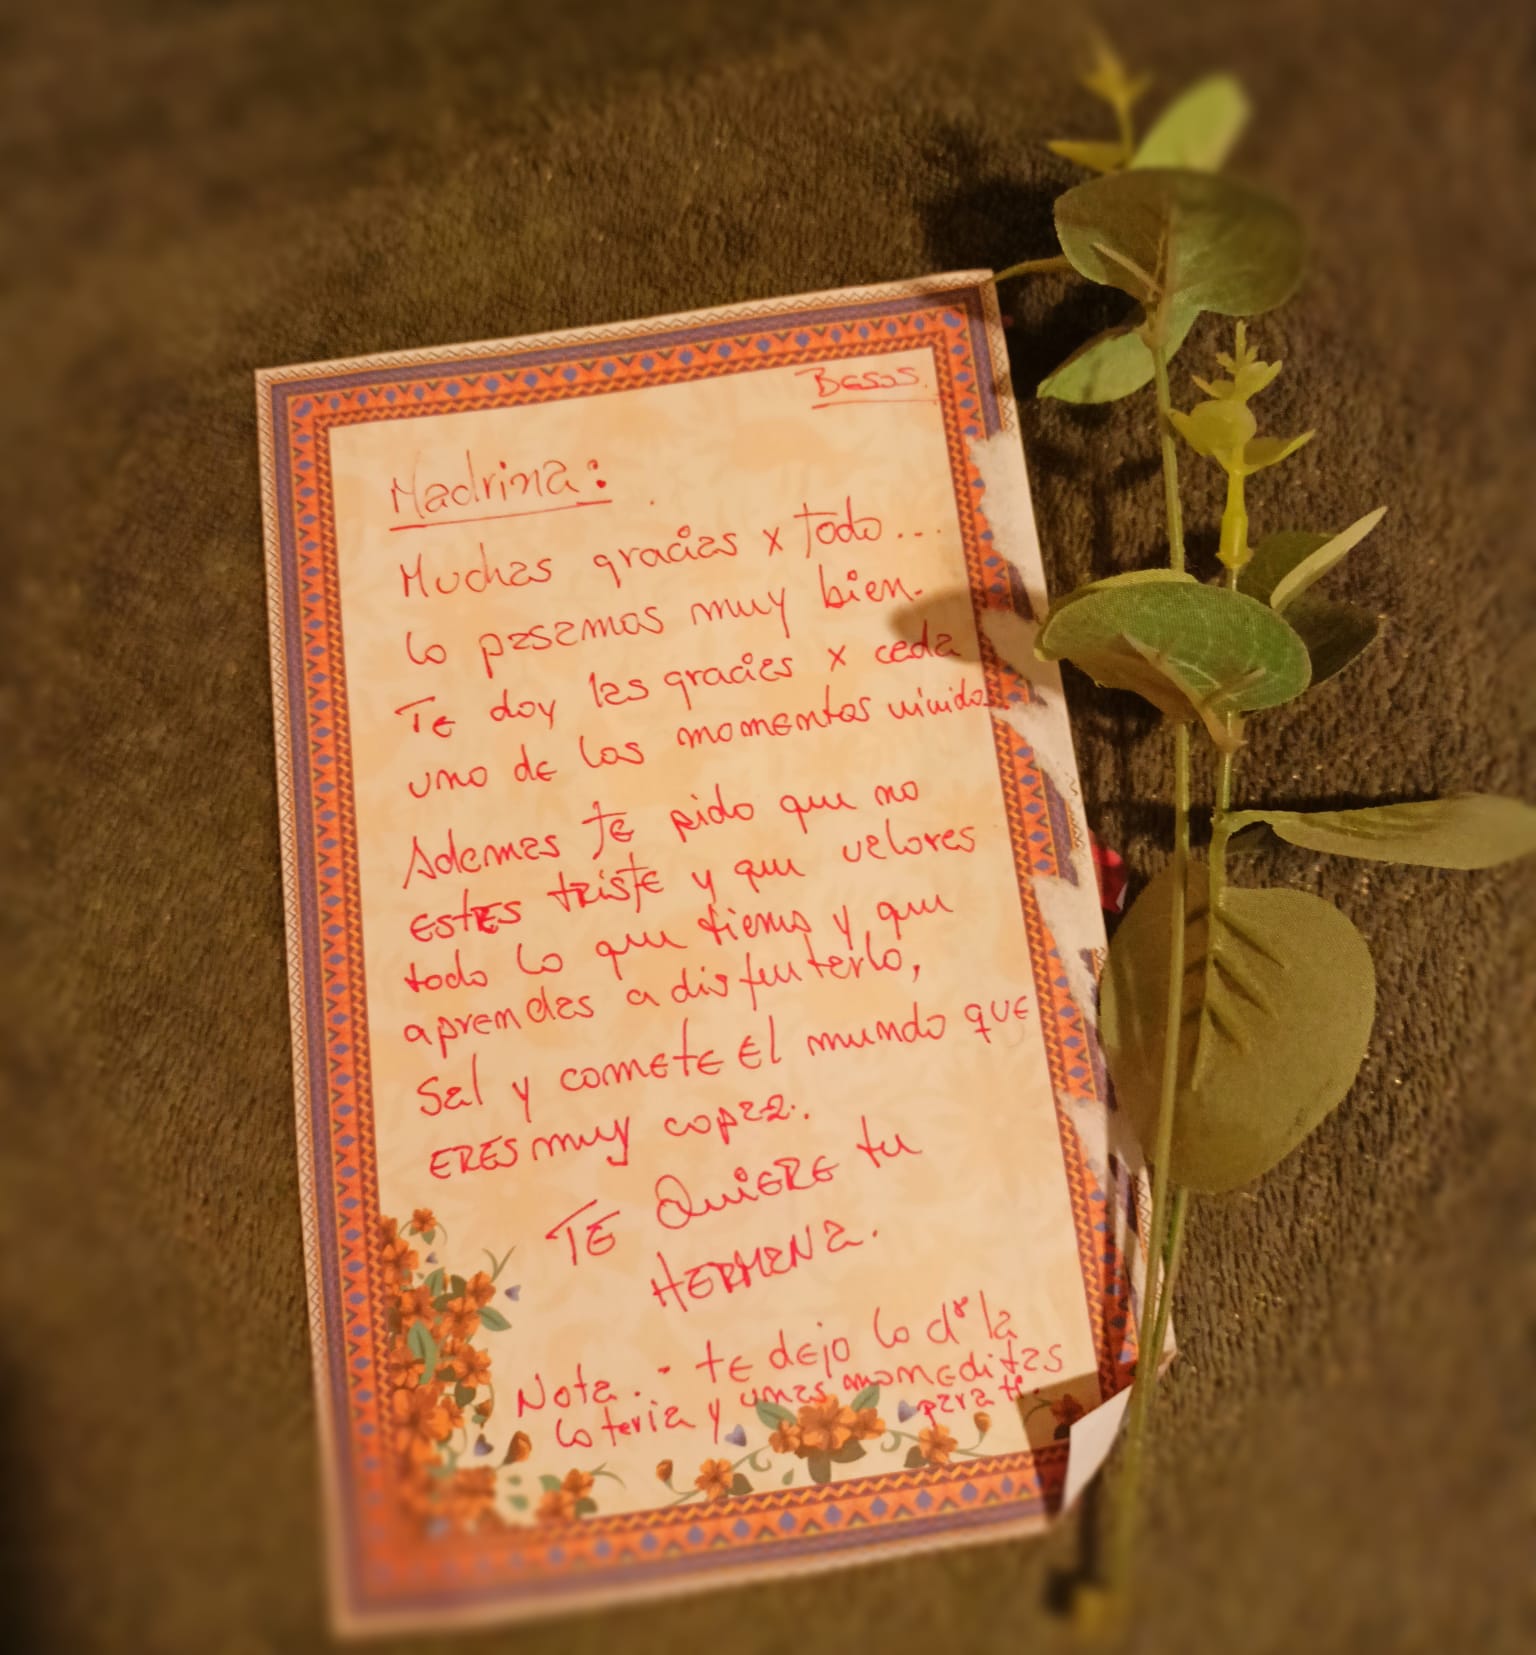 Besos.
Madrina:
Muchas gracias x todo...
lo pasamos muy bien.
Te doy las gracias x cada
uno de los momentos vividos.
Ademas te pido que no
estes triste y que valores
todo lo que tienes y que
aprendas a disfrutarlo,
Sal y comete El mundo que
ERES muy capaz.
TE QuiERE tu
HERMANA.
Nota.- te dejo lo d la
loteria y unas moneditas
para ti.